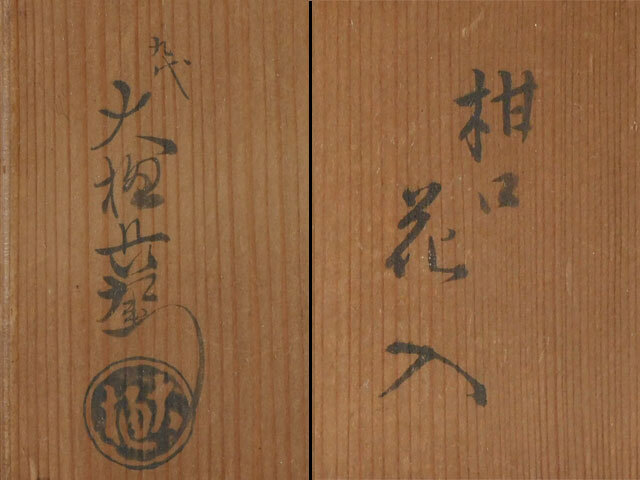 柑口
花入
九代
大樋長左衛門
大樋